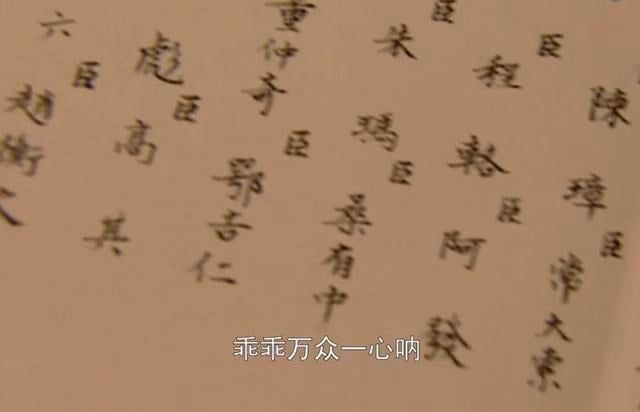 陳璋臣常大索
臣程輅臣阿發
臣朱瑪臣桑有中
仲奇臣鄂吉仁
彪臣高其
六臣趙衛
乖乖万众一心呐